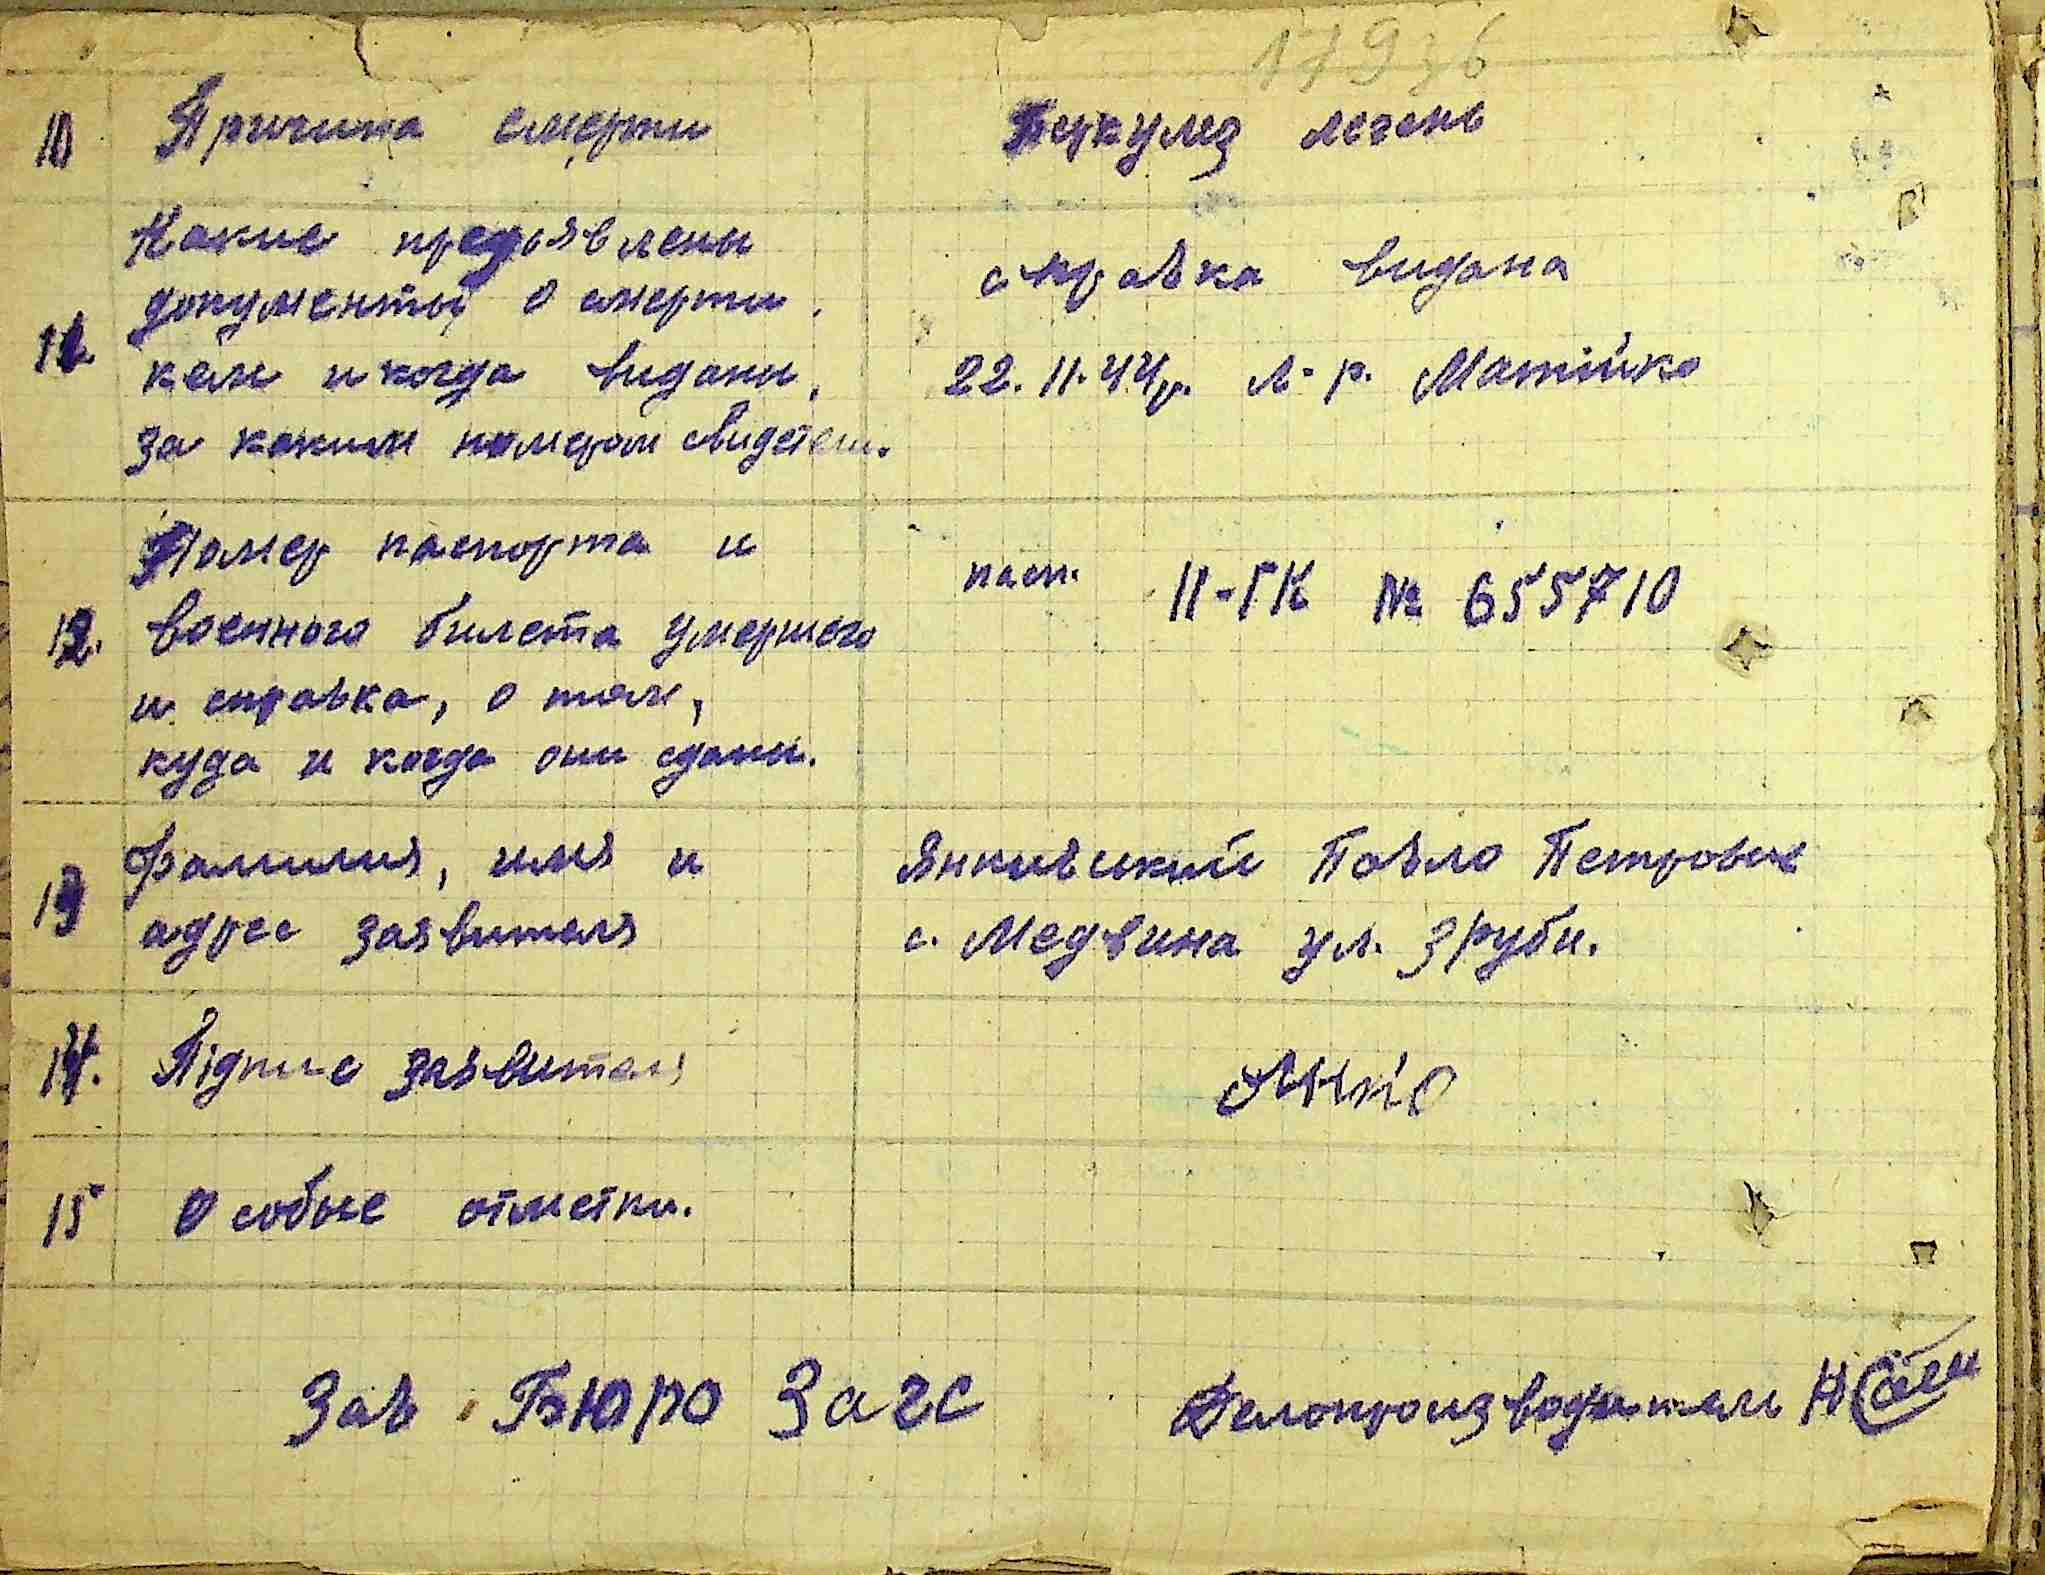 17936
10 Причина смерти Беркулез легень
Какие предоявлены
документы о смерти,
11. кем и когда видани,
за каким номером свидетели.
справка видана
22.11.44р. л-р. Матійко
Номер паспорта и
12. военного билета умершого
и справка, о том,
куда и когда они сдани.
пасп. II-ГК № 655710
13 Фамилия, имя и
адрес заявителя
Янкивский Павло Петрович
с. Медвина ул. Зруби.
14. Підпис заявителя
15 Особые отметки.
Зав. Бюро Загс Делопроизводитель